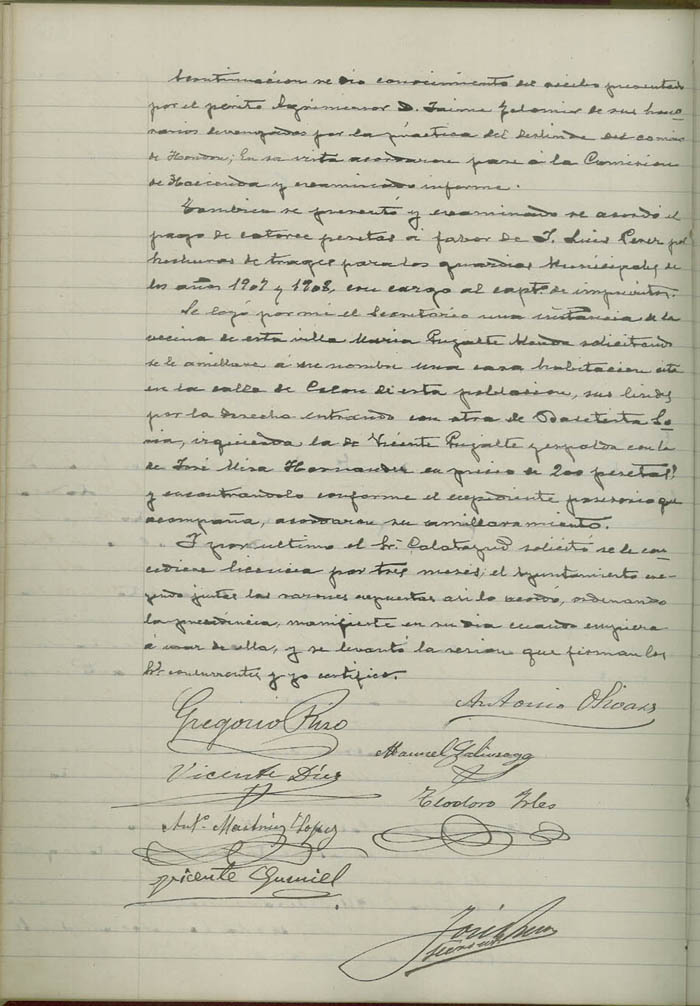 A continuación se dio conocimiento del recibo presentado
por el perito Agrimensor D. Jaime Gelomier de sus hono-
rarios devengados por la práctica del deslinde del camino
de Hondon; En su vista acordaron pase á la Comision
de Hacienda y examinado informe.
Tambien se presentó y examinado se acordó el
pago de catorce pesetas á favor de J. Luis Perez por
hechuras de trages para los guardias Municipales de
los años 1907 y 1908, con cargo al capt.º de imprevistos.
Se leyó por mi el Secretario una instancia de la
vecina de esta villa Maria Pujalte Manda solicitando
se le amillare á su nombre una casa habitacion sita
en la calle de Colon de esta poblacion, sus lindes
por la derecha entrando con otra de
izquierda la de Vicente Pujalte y espalda con la
de José Mira Hernandez en precio de 200 pesetas
y encontrandolo conforme el expediente posesorio que
acompaña, acordaron su amillaramiento.
Y por ultimo el Sr. Calatayud solicitó se le con-
cediera licencia por tres meses; el Ayuntamiento cre-
yendo justas las razones expuestas asi lo acordo, ordenando
la presidencia, manifieste en su dia cuando empiera
á usar de ella, y se levantó la sesion que firman los
Srs. concurrentes y yo certifico.
Gregorio Rizo
Antonio Olivares
Manuel Galinsoga
Vicente Díez
Teodoro Irles
Ant.º Martínez Lopez
Vicente
José